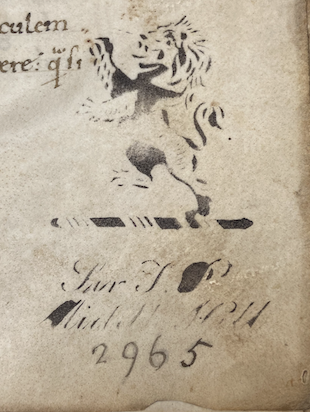 culem
ere: q̈si
Sir T. P
Middle Hill
2965